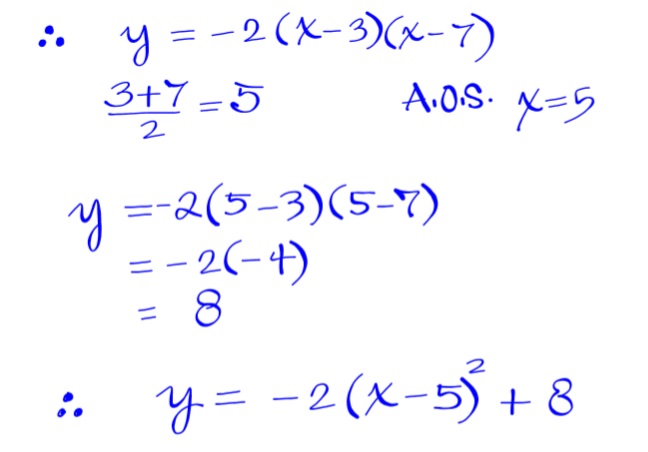 ∴ y = -2(x-3)(x-7)
3+7/2 = 5 A.O.S. x=5
y =-2(5-3)(5-7)
= -2(-4)
= 8
∴ y = -2(x-5)² + 8